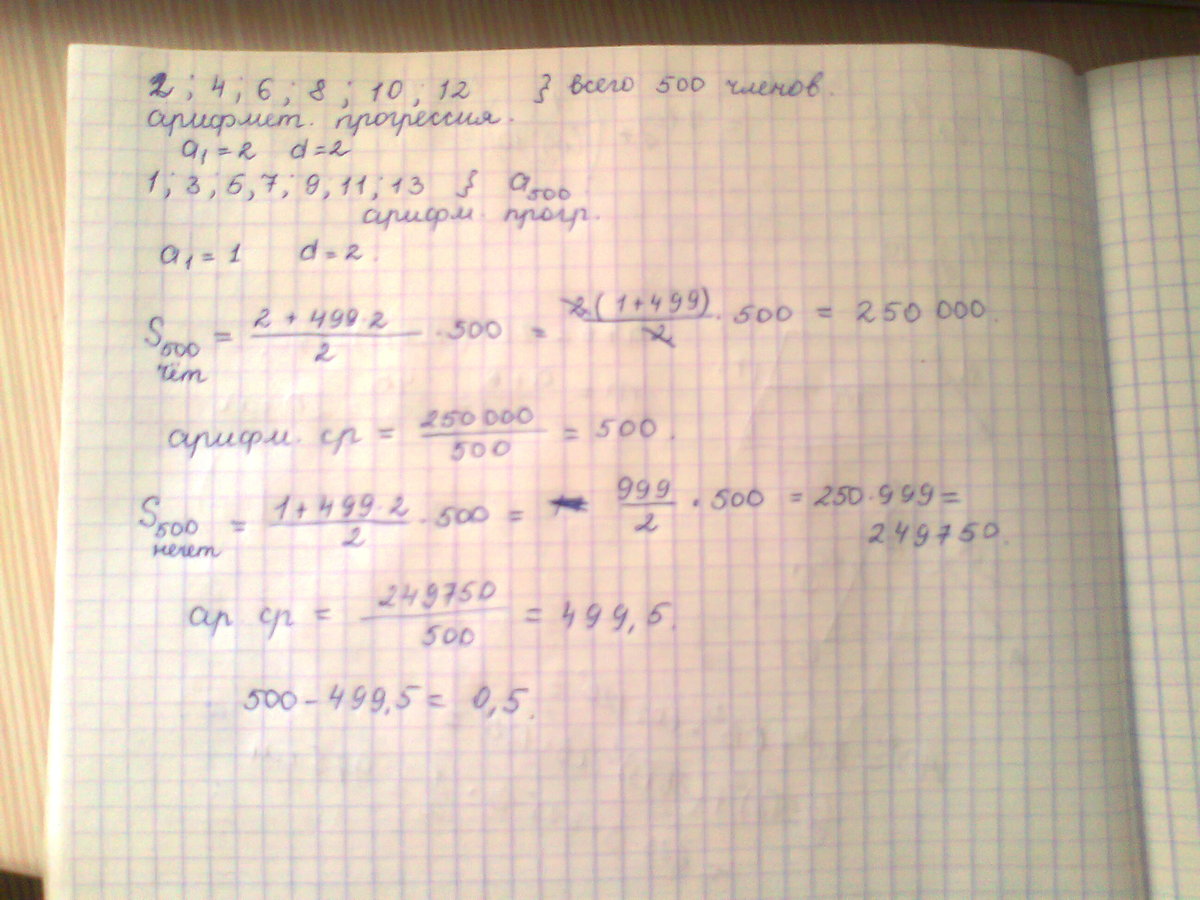 2 ; 4 ; 6 ; 8 ; 10 ; 12 } всего 500 членов.
арифмет. прогрессия.
a₁ = 2 d = 2
1 ; 3 ; 5, 7 ; 9, 11 ; 13 } a₅₀₀
арифм. прогр.
a₁ = 1 d = 2.
S₅₀₀ чёт = (2 + 499·2)/2 · 500 = 2·(1+499)/2 · 500 = 250 000.
арифм. ср = 250 000/500 = 500.
S₅₀₀ нечет = (1 + 499·2)/2 · 500 = 999/2 · 500 = 250·999 =
249750.
ар ср = 249750/500 = 499,5.
500 - 499,5 = 0,5.